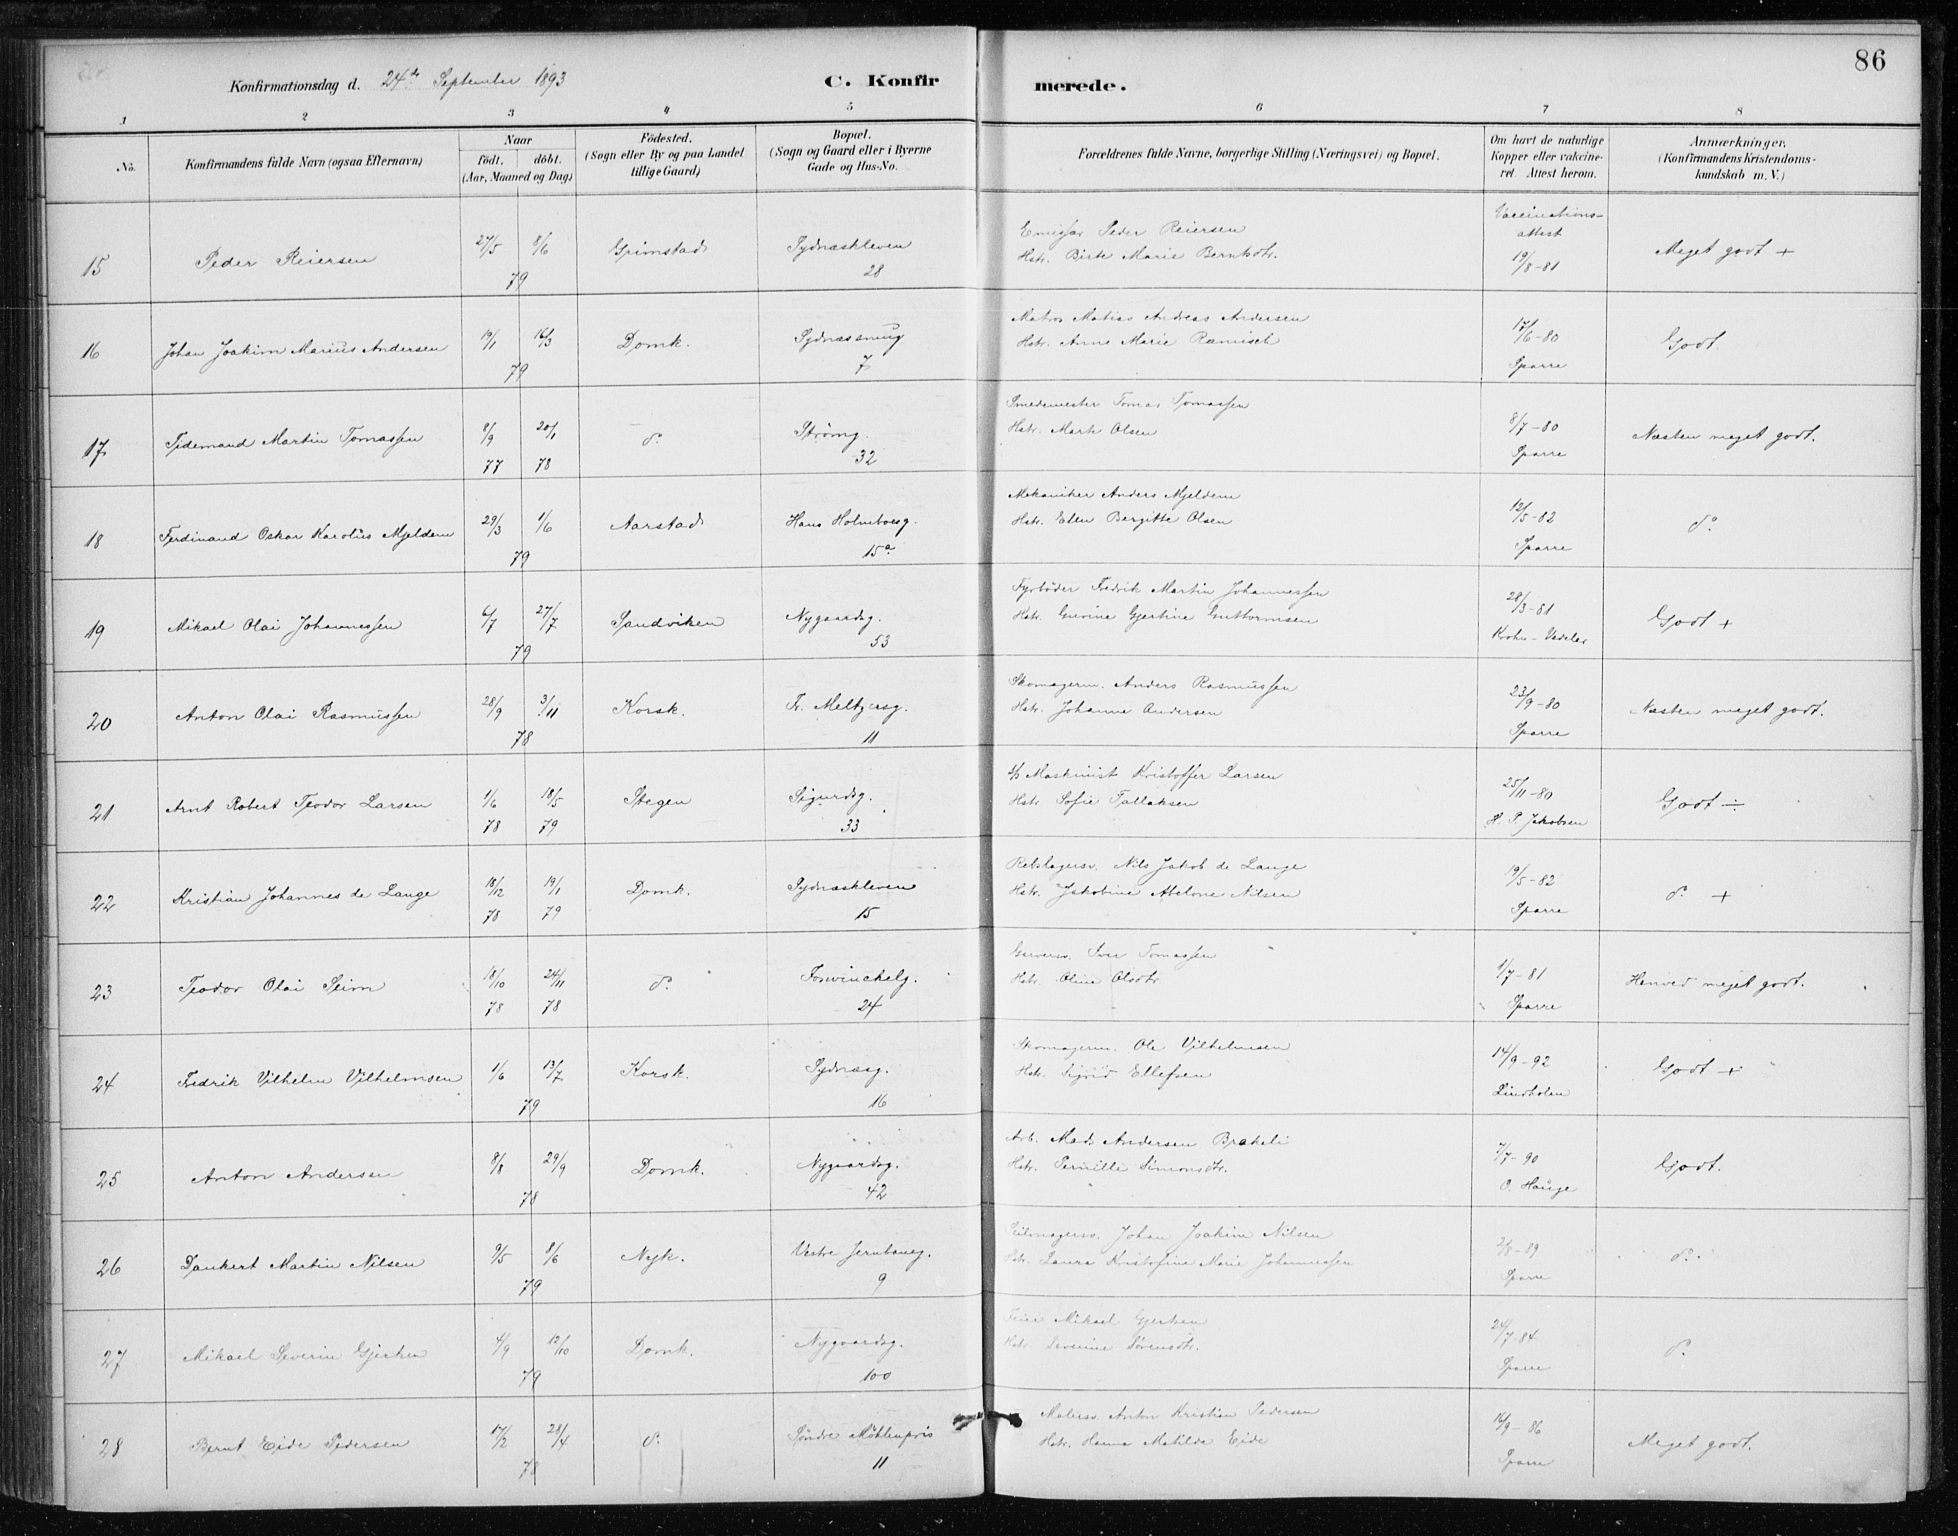 86
Konfirmationsdag d. 24de September 1893 C. Konfirmerede.
1 2 3 4 5 6 7 8
No. Konfirmandens fulde Navn (ogsaa Efternavn) Naar født. døbt. (Aar, Maaned og Dag) Fødested. (Sogn eller By og paa Landet tillige Gaard) Bopæl. (Sogn og Gaard eller i Byerne Gade og Hus-No. Forældrenes fulde Navne, borgerlige Stilling (Næringsvei) og Bopæl. Om havt de naturlige Kopper eller vakcineret. Attest herom. Anmærkninger. (Konfirmandens Kristendomskundskab m. V.)
Vaccinations-
attest
15 Peder Reiersen 27/5 8/6 79 Grimstad Sydnæskleven 28
Emissær Peder Reiersen
Hstr. Birte Marie Berntsdtr. 19/8-81 Meget godt +
16 Johan Joakim Marius Andersen 19/1 16/3 79 Domk. Sydnæssmug 7
Matros Matias Andreas Andersen
Hstr. Anne Marie Ramisch 17/6-80 Sparre Godt.
17 Tidemand Martin Tomassen 8/9 77 20/1 78 do. Strømg. 32
Smedemester Tomas Tomassen
Hstr. Marte Olsen 8/7-80 Sparre Næsten meget godt.
18 Ferdinand Oskar Karolius Mjeldem 29/3 1/6 79 Aarstad Hans Holmboesg. 15a
Mekaniker Anders Mjeldem
Hstr. Elen Bergitte Olsen 12/5-82 Sparre do
19 Mikael Olai Johannessen 6/7 27/7 79 Sandviken Nygaardsg. 53
Fyrbøder Fredrik Martin Johannessen
Hstr. Gurine Gjertine Guttormsen 28/3-81 Krohn-Vedeler Godt +
20 Anton Olai Rasmussen 28/9 3/11 78 Korsk. Fr. Meltzersg. 11
Skomagerm. Anders Rasmussen
Hstr. Johanna Andersen 23/9-80 Sparre Næsten meget godt.
21 Arnt Robert Teodor Larsen 1/6 78 18/5 79 Stegen Sigurdsg. 33
Maskinist Kristoffer Larsen
Hstr. Sofie Tallaksen 25/11-80 H. P. Jakobsen Godt ÷
22 Kristian Johannes de Lange 18/12 78 19/1 79 Domk. Sydnæskleven 15
Rebslagersv. Nils Jakob de Lange
Hstr. Jakobine Abelone Nilsen 19/5-82 Sparre do. +
23 Teodor Olai Seim 18/10 78 24/11 78 do. Foswinckelg. 24
Garversv. Iver Tomassen
Hstr. Oline Olsdtr 1/7-81 Sparre Henved meget godt.
24 Fredrik Vilhelm Vilhelmsen 1/6 13/7 79 Korsk. Sydnæsg. 16
Skomagerm. Ole Vilhelmsen
Hstr. Sigrid Ellefsen 14/9-92 Lindholm Godt +
25 Anton Andersen 8/8 29/9 78 Domk. Nygaardsg. 42
Arb. Mads Andersen Brakeli
Hstr. Pernille Simonsdtr. 7/7-90 O. Hauge Godt.
26 Dankert Martin Nilsen 9/5 8/6 79 Nyk. Vestre Jernbaneg. 9
Seilmagersv. Johan Joakim Nilsen
Hstr. Laura Kristofine Marie Johannessen 2/8-89 Sparre do.
27 Mikael Severin Gjertsen 4/9 12/10 79 Domk. Nygaardsg. 100
Feier Mikael Gjertsen
Hstr. Severine Sørensdtr. 24/7-84 Sparre do.
28 Bernt Eide Pedersen 17/2 28/4 78 do. Søndre Møhlenpris 11
Malersv. Anton Kristian Pedersen
Hstr. Hanna Matilde Eide 16/9-86 Sparre Meget godt.